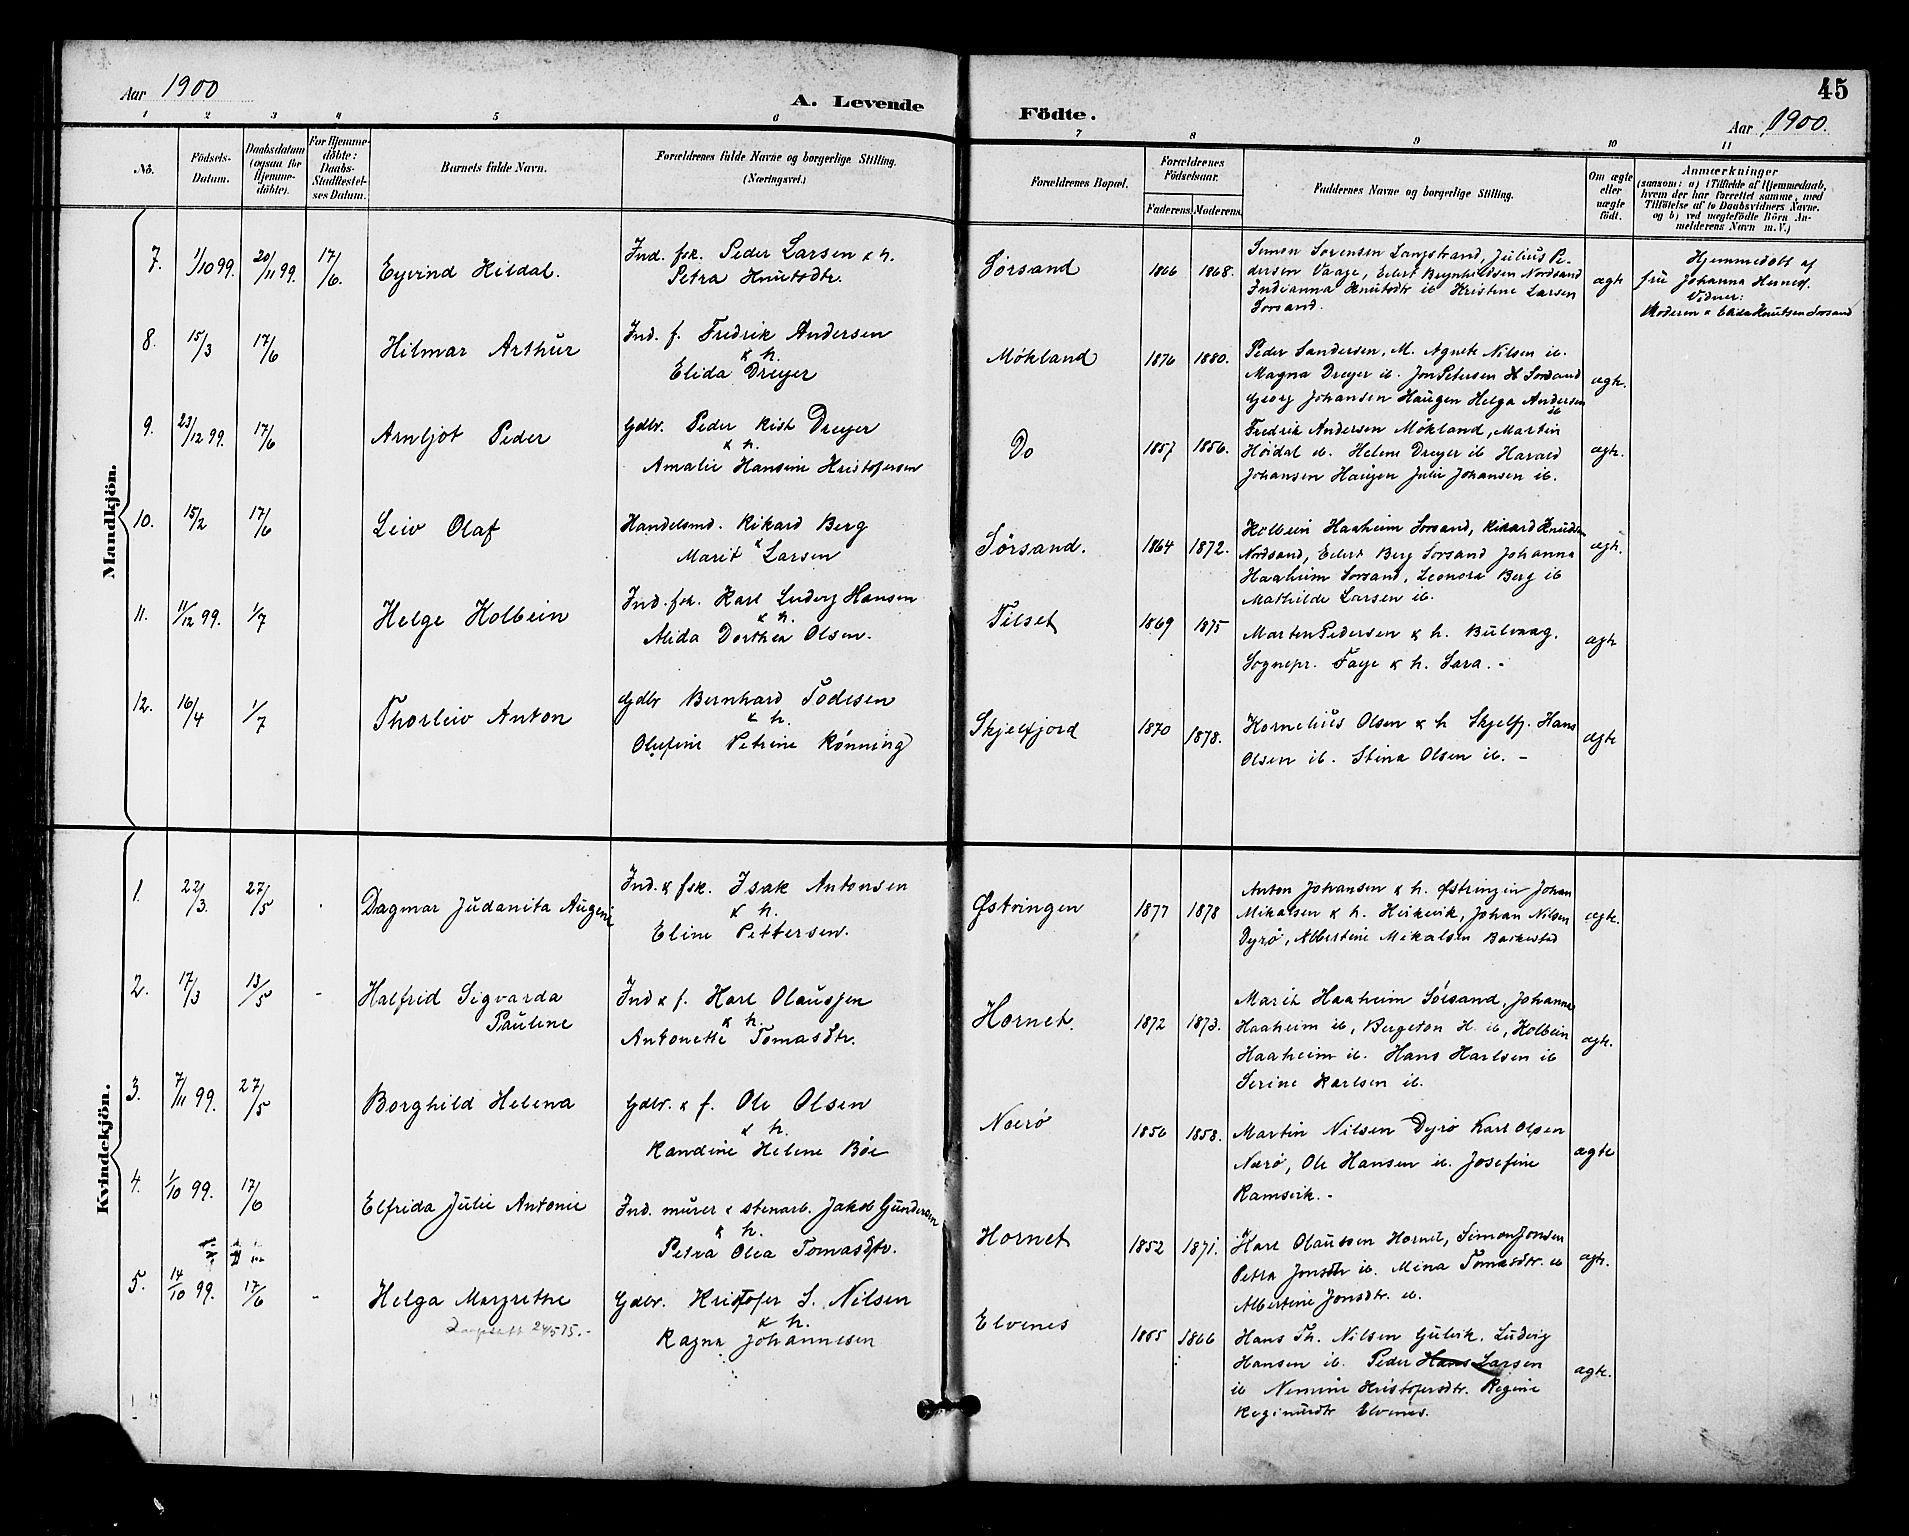 Aar 1900
A. Levende
Födte.
45
Aar 1900.
1 2 3 4 5 6 7 8 9 10 11
No.
Födsels-
Datum.
Daabsdatum
(ogsaa for
Hjemme-
döbte).
For Hjemme-
döbte:
Daabs-
Stadfæstel-
ses Datum.
Barnets fulde Navn.
Forældrenes fulde Navne og borgerlige Stilling.
(Næringsvei.)
Forældrenes Bopæl.
Forældrenes
Födselsaar.
Faderens. Moderens.
Faddernes Navne og borgerlige Stilling.
Om ægte
eller
uægte
födt.
Anmærkninger
(saasom: a) i Tilfælde af Hjemmedaab,
hvem der har forrettet samme, med
Tilföielse af to Daabsvidners Navne,
og b) ved uægtefödte Börn An-
melderens Navn m. V.)
Mandkjön.
7. 1/10 99. 20/11 99. 17/6. Eyvind Hildal.
Ind. fsk. Peder Larsen & h.
Petra Knutsdtr.
Sørsand 1866 1868.
Simon Sørensen Langstrand, Julius Pe-
dersen Vaage, Eilert Brynhildsen Nordsand
Indianna Knutsdtr ib Kristine Larsen
Sørsand.
ægte
Hjemmedøbt af
fru Johanna
Vidner:
Moderen & Elida Knutsen Sørsand
8. 15/3 17/6 Hilmar Arthur
Ind. f. Fredrik Andersen
& h.
Elida Dreyer
Møkland 1876 1880.
Peder Sandersen, M. Agnete Nilsen ib.
Magna Dreyer ib. Jon Petersen H Sørsand
Georg Johansen Haugen Helga Andersen
ib
ægte.
9. 23/12 99. 17/6 Arnljot Peder
Gdbr. Peder Kist Dreyer
& h.
Amalie Hansine Kristofersen
Do 1857 1856.
Fredrik Andersen Møkland, Martin
Høidal ib. Helene Dreyer ib Harald
Johansen Haugen Julie Johansen ib.
ægte.
10. 15/2 17/6 Leiv Olaf
Handelsmd. Rikard Berg
&
Marit Larsen
Sørsand. 1864 1872.
Kolbein Haaheim Sørsand, Rikard Knudsen
Nordsand, Eilert Berg Sørsand Johanna
Haaheim Sørsand, Leonora Berg ib
Mathilde Larsen ib.
ægte.
11. 11/12 99. 1/7 Helge Kolbein
Ind. fsk. Karl Ludvig Hansen
& h.
Alida Dorthea Olsen.
Tilset 1869 1875
Marten Pedersen & h. Bulvaag.
Sognepr. Faye & h. Sara. -
ægte
12. 16/4 1/7 Thorleiv Anton
Gdbr Bernhard Todesen
& h.
Olufine Petrine Rønning
Skjelfjord 1870 1878.
Kornelius Olsen & h Skjelfj. Hans
Olsen ib. Stina Olsen ib. -
ægte
Kvindekjön.
1. 22/3. 27/5 Dagmar Judanita Augeni
Ind. & fsk. Isak Antonsen
& h.
Eline Pettersen.
Østringen 1877 1878
Anton Johansen & h. Østringen Johan
Mikalsen & h. Heikvik, Johan Nilsen
Dyrø, Albertine Mikalsen Barkestad
ægte.
2. 17/3 13/5 - Halfrid Sigvarda
Pauline
Ind & f. Karl Olaussen
& h.
Antonette Tomasdtr.
Hornet. 1872 1873.
Marit Haaheim Sørsand, Johanna
Haaheim ib, Bergeton H. ib, Kolbein
Haaheim ib. Hans Karlsen ib
Serine Karlsen ib.
ægte.
3. 7/11 99. 27/5 Borghild Helena
Gdbr. & f. Ole Olsen
& h.
Randine Helene Bøe
Nærø 1856 1858.
Martin Nilsen Dyrø Karl Olsen
Nærø, Ole Hansen ib. Josefine
Ramsvik. -
ægte
4. 1/10 99. 17/6 Elfrida Julie Antonie
Ind. murer & stenarb. Jakob Gundersen
& h.
Petra Olea Tomasdtr.
Hornet 1852 1871.
Karl Olaussen Hornet, Simon Jonsen
Petra Jonsdtr ib. Mina Tomasdtr. ib
Albertine Jonsdtr. ib.
ægte.
5. 14/10 99. 17/6 - Helga Margrethe
24575.-
Gdbr. Kristofer S. Nilsen
& h.
Ragna Johannesen
Elvenes 1865 1866
Hans Th. Nilsen Gulvik. Ludvig
Hansen ib. Peder Hans Larsen
ib Nemine Kristofersdtr. Regine
Reginusdtr Elvenes.
ægte.